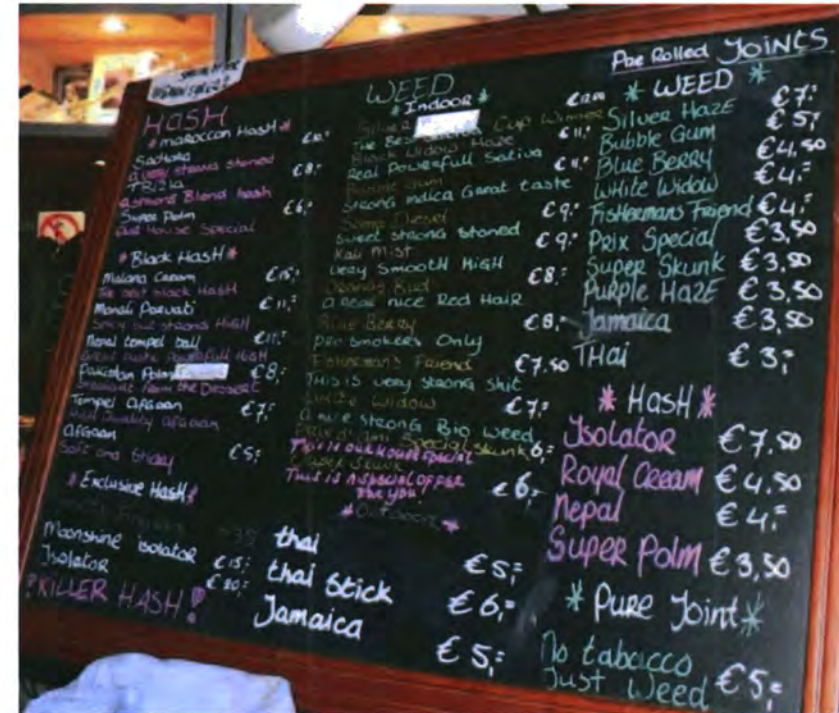 HASH
* Maroccan Hash *
Sadhara
a very strong stoned €8,-
TBizla
Blond hash
Super Polm €6,-
Our House Special
* Black Hash *
Malana Cream €15,-
The best black Hash
Manali Parvati €11,-
Spicy but strong High
Nepal tempel ball €11,-
Great taste Powerfull High
Pakistan Polm €8,-
Straight from the Dessert
Tempel Afgaan €7,-
High Quality afgaan
Afgaan
Soft and Sticky €5,-
* Exclusive Hash *
Moonshine isolator €15,-
Isolator €20,-
!KILLER HASH!
WEED
* Indoor *
Silver Cup Winner €12,00
The Best
Black Widow Haze €11,-
Real Powerfull Sativa
Bubble Gum €11,-
Strong indica Great taste
Diesel €9,-
Sweet strong stoned
Kali Mist €9,-
Very Smooth High
Orange Bud €8,-
a Real nice Red Hair
Blue Berry €8,-
pro Smokers Only
Fisherman's Friend €7,50
This is very strong shit
White Widow €7,-
a nice strong Bio weed
Special skunk 6,-
This is our House special
Super Skunk
This is a special offer €6,-
for you!
* Outdoor *
thai €5,-
thai Stick €6,-
Jamaica €5,-
Pre Rolled JOINTS
* WEED *
Silver Haze €7,-
Bubble Gum €5,-
Blue Berry €4,50
White Widow €4,-
Fishermans Friend €4,-
Prix Special €3,50
Super Skunk €3,50
Purple Haze €3,50
Jamaica €3,50
THai €3,-
* HasH *
Isolator €7,50
Royal Cream €4,50
Nepal €4,-
Super Polm €3,50
* Pure Joint *
No tabacco
Just Weed €5,-